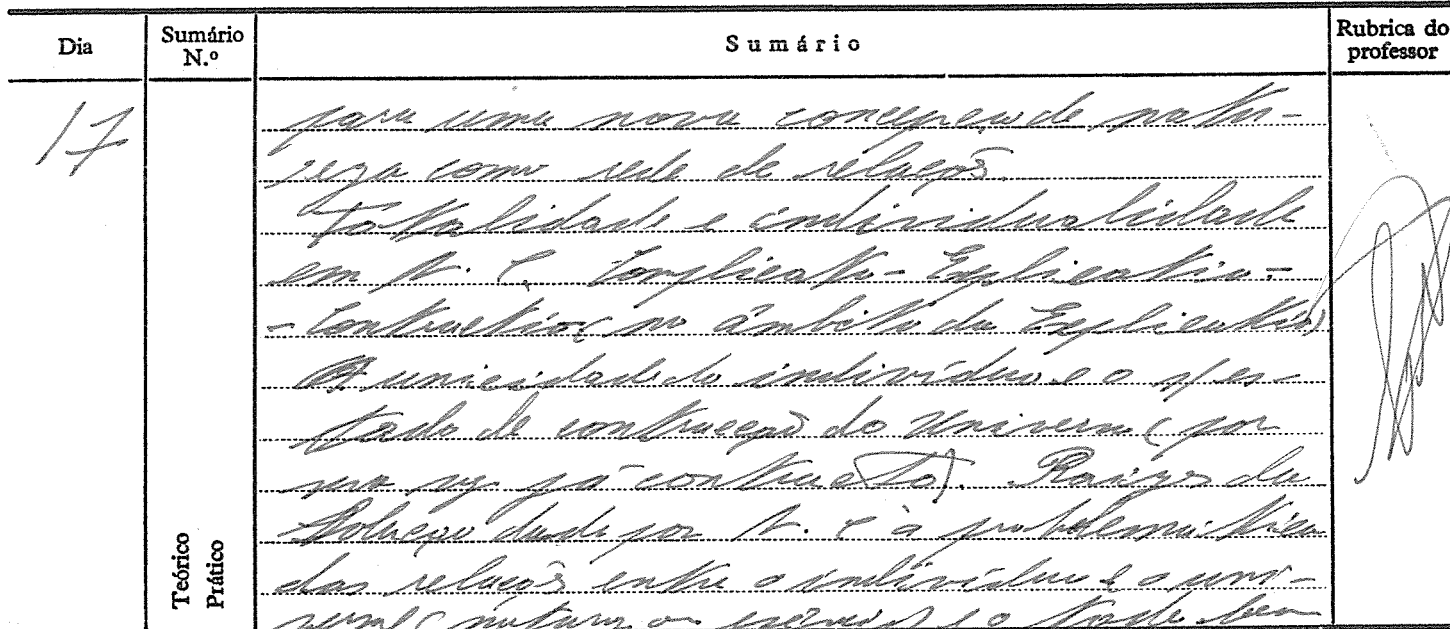 Dia
Sumário N.º
Sumário
Rubrica do professor
17
para uma nova concepção de natu-
reza como rede de relações.
Totalidade e individualidade
em N. C. Complicatio - Explicatio -
- Contractio (no âmbito da Explicatio)
A unicidade do indivíduo e o s/ es-
tado de contracção do Universo (por
sua vez já contracto). Raízes da
Solução dada por N. C. à problemática
das relações entre o indivíduo e o uni-
versal (
Teórico
Prático